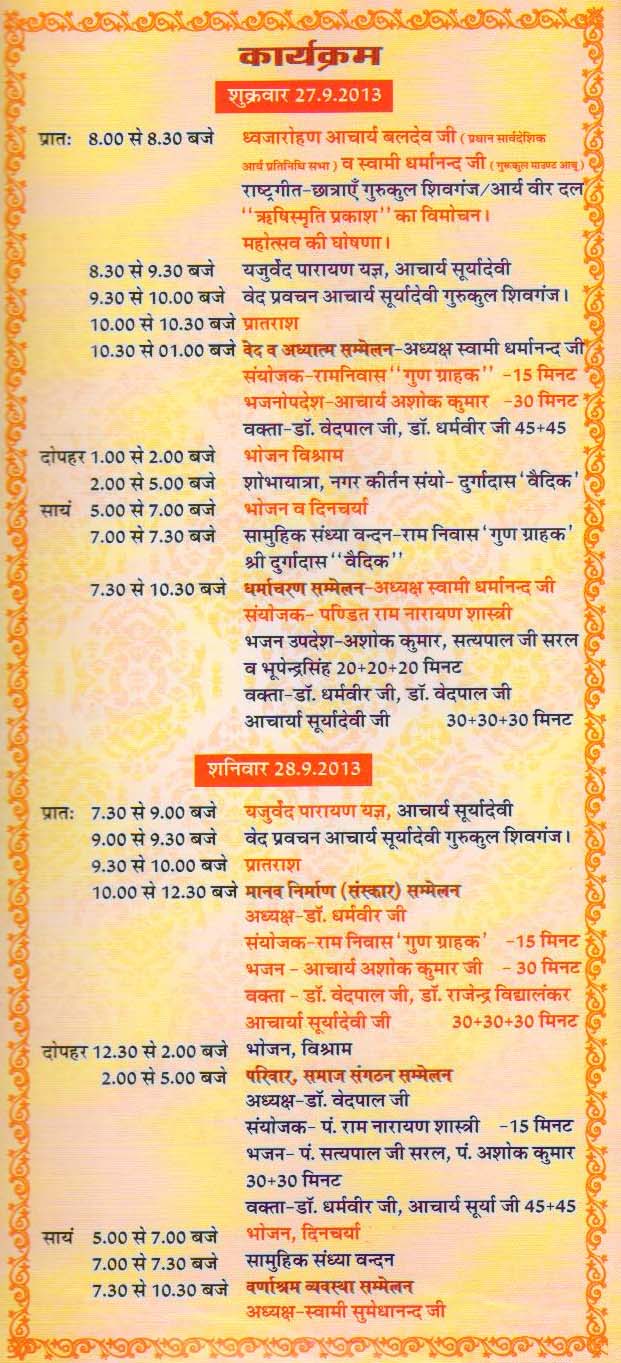 कार्यक्रम
शुक्रवार 27.9.2013
प्रातः 8.00 से 8.30 बजे ध्वजारोहण आचार्य बलदेव जी ( प्रधान सार्वदेशिक
आर्य प्रतिनिधि सभा ) व स्वामी धर्मानन्द जी ( गुरूकुल माउण्ट आबू )
राष्ट्रगीत-छात्राएँ गुरुकुल शिवगंज/आर्य वीर दल
''ऋषिस्मृति प्रकाश'' का विमोचन।
महोत्सव की घोषणा।
8.30 से 9.30 बजे यजुर्वेद पारायण यज्ञ, आचार्य सूर्यादेवी
9.30 से 10.00 बजे वेद प्रवचन आचार्य सूर्यादेवी गुरुकुल शिवगंज।
10.00 से 10.30 बजे प्रातराश
10.30 से 01.00 बजे वेद व अध्यात्म सम्मेलन-अध्यक्ष स्वामी धर्मानन्द जी
संयोजक-रामनिवास ''गुण ग्राहक'' -15 मिनट
भजनोपदेश-आचार्य अशोक कुमार -30 मिनट
वक्ता-डॉ. वेदपाल जी, डॉ. धर्मवीर जी 45+45
दोपहर 1.00 से 2.00 बजे भोजन विश्राम
2.00 से 5.00 बजे शोभायात्रा, नगर कीर्तन संयो- दुर्गादास 'वैदिक'
सायं 5.00 से 7.00 बजे भोजन व दिनचर्या
7.00 से 7.30 बजे सामुहिक संध्या वन्दन-राम निवास 'गुण ग्राहक'
श्री दुर्गादास ''वैदिक''
7.30 से 10.30 बजे धर्माचरण सम्मेलन-अध्यक्ष स्वामी धर्मानन्द जी
संयोजक- पण्डित राम नारायण शास्त्री
भजन उपदेश-अशोक कुमार, सत्यपाल जी सरल
व भूपेन्द्रसिंह 20+20+20 मिनट
वक्ता-डॉ. धर्मवीर जी, डॉ. वेदपाल जी
आचार्या सूर्यादेवी जी 30+30+30 मिनट
शनिवार 28.9.2013
प्रातः 7.30 से 9.00 बजे यजुर्वेद पारायण यज्ञ, आचार्य सूर्यादेवी
9.00 से 9.30 बजे वेद प्रवचन आचार्य सूर्यादेवी गुरुकुल शिवगंज।
9.30 से 10.00 बजे प्रातराश
10.00 से 12.30 बजे मानव निर्माण (संस्कार) सम्मेलन
अध्यक्ष-डॉ. धर्मवीर जी
संयोजक-राम निवास 'गुण ग्राहक' -15 मिनट
भजन - आचार्य अशोक कुमार जी - 30 मिनट
वक्ता - डॉ. वेदपाल जी, डॉ. राजेन्द्र विद्यालंकर
आचार्या सूर्यादेवी जी 30+30+30 मिनट
दोपहर 12.30 से 2.00 बजे भोजन, विश्राम
2.00 से 5.00 बजे परिवार, समाज संगठन सम्मेलन
अध्यक्ष-डॉ. वेदपाल जी
संयोजक- पं. राम नारायण शास्त्री -15 मिनट
भजन- पं. सत्यपाल जी सरल, पं. अशोक कुमार
30+30 मिनट
वक्ता-डॉ. धर्मवीर जी, आचार्य सूर्या जी 45+45
सायं 5.00 से 7.00 बजे भोजन, दिनचर्या
7.00 से 7.30 बजे सामुहिक संध्या वन्दन
7.30 से 10.30 बजे वर्णाश्रम व्यवस्था सम्मेलन
अध्यक्ष-स्वामी सुमेधानन्द जी